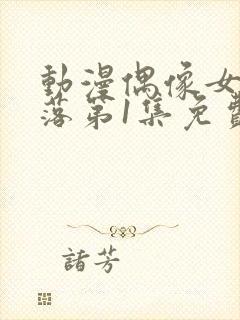 動漫偶像女
落第1集免費
諸芳